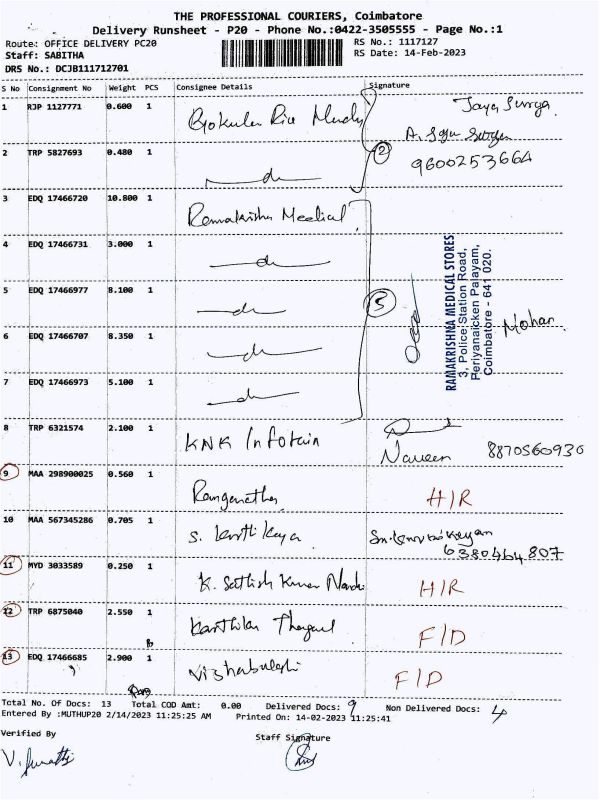 THE PROFESSIONAL COURIERS, Coimbatore
Delivery Runsheet - P20 - Phone No.:0422-3505555 - Page No.:1
Route: OFFICE DELIVERY PC20
RS No.: 1117127
Staff: SABITHA
RS Date: 14-Feb-2023
DRS No.: DCJB111712701
S No Consignment No Weight PCS Consignee Details Signature
1 RJP 1127771 0.600 1 Jaya Surya
2 TRP 5827693 0.480 1 do 2 9600253664
3 EDQ 17466720 10.800 1 Ramakrishna Medical
4 EDQ 17466731 3.000 1 do
5 EDQ 17466977 8.100 1 do 5
6 EDQ 17466707 8.350 1 do
7 EDQ 17466973 5.100 1 do
RAMAKRISHNA MEDICAL STORES
3, Police Station Road,
Periyanaicken Palayam,
Coimbatore - 641 020.
Mohan
8 TRP 6321574 2.100 1 KNK Infotain Naveen 8870560930
9 MAA 298900025 0.560 1 Ranganathan H/R
10 MAA 567345286 0.705 1 S. Karthikeya 6380464807
11 MYD 3033589 0.250 1 K. Sathish Kumar H/R
12 TRP 6875040 2.550 1 F/D
13 EDQ 17466685 2.900 1 F/D
Total No. Of Docs: 13 Total COD Amt: 0.00 Delivered Docs: 9 Non Delivered Docs: 4
Entered By :MUTHUP20 2/14/2023 11:25:25 AM Printed On: 14-02-2023 11:25:41
Verified By Staff Signature